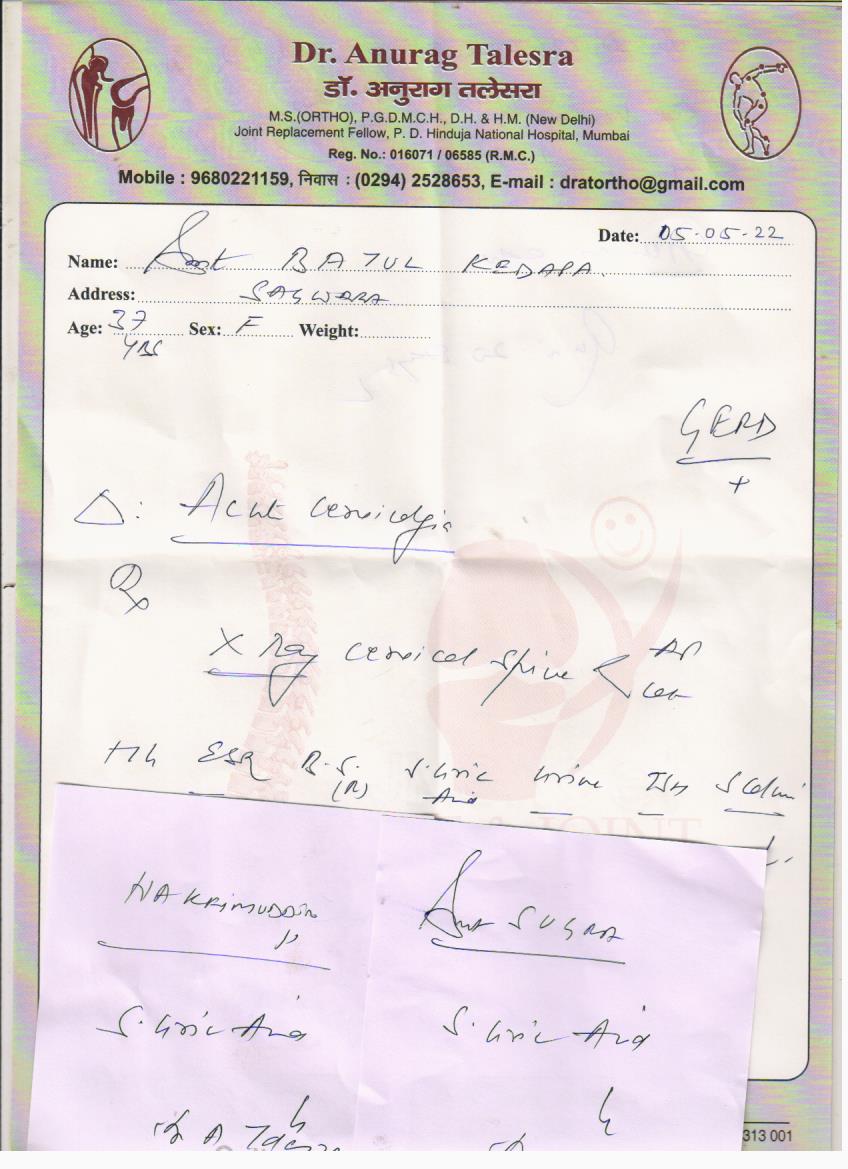 Dr. Anurag Talesra
डॉ. अनुराग तलेसरा
M.S.(ORTHO), P.G.D.M.C.H., D.H. & H.M. (New Delhi)
Joint Replacement Fellow, P. D. Hinduja National Hospital, Mumbai
Reg. No.: 016071 / 06585 (R.M.C.)
Mobile : 9680221159, निवास : (0294) 2528653, E-mail : dratortho@gmail.com
Date: 05-05-22
Name: Smt BATUL KEDAPA
Address: SAGWARA
Age: 37 yrs Sex: F Weight:
GERD
+
Δ: Acute cervicalgia
Rx
X Ray cervical spine < AP
Lat
Hb ESR B.S. (R) S. Uric Acid Urine TSH
JOINT
HAKIMUDDIN Smt SUGRA
S. Uric Acid S. Uric Acid
313 001